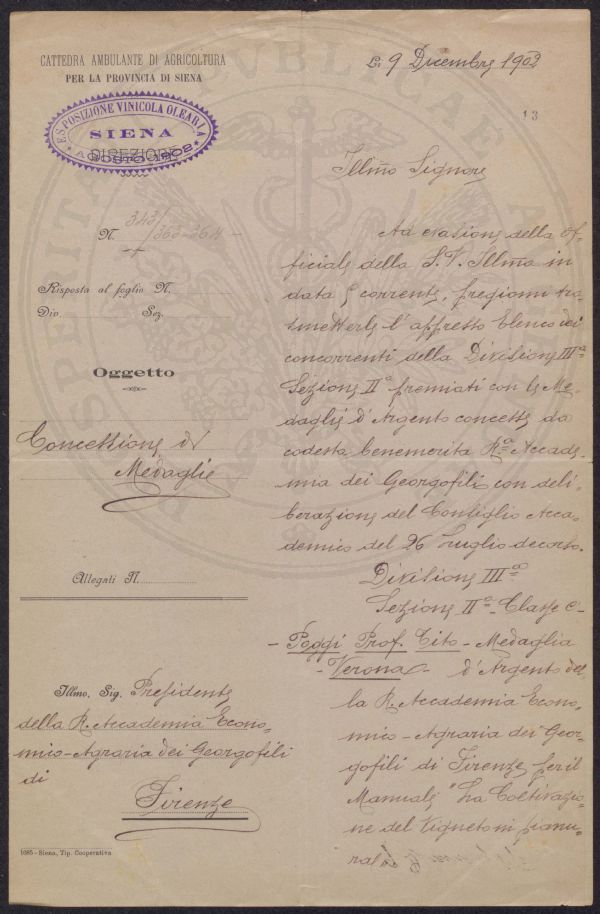 CATTEDRA AMBULANTE DI AGRICOLTURA
PER LA PROVINCIA DI SIENA
ESPOSIZIONE VINICOLA OLEARIA
SIENA
DIREZIONE
AGOSTO 1903
Li 9 Dicembre 1903
13
Illmo Signore
N. 343/363-364
Risposta al foglio N.
Div. Sez.
Oggetto
Concessione di
Medaglie
Allegati N.
Illmo. Sig. Presidente
della R. Accademia Econo-
mico-Agraria dei Georgofili
di
Firenze
1085 - Siena, Tip. Cooperativa
Ad evasione della of-
ficiale della S. V. Illma in
data 5 corrente, pregiomi tra-
smetterle l'appresso Elenco dei
concorrenti della Divisione IIIa
Sezione IIa premiati con le Me-
daglie d'Argento concesse da
codesta benemerita Ra Accade-
mia dei Georgofili con deli-
berazione del Consiglio Acca-
demico del 26 Luglio decorso.
Divisione IIIa
Sezione IIa - Classe C -
- Poggi Prof. Tito - Medaglia
- Verona - d'Argento del-
la R. Accademia Econo-
mico - Agraria dei Geor-
gofili di Firenze per il
Manuale "La Coltivazio-
ne del Vigneto in pianu-
ra"